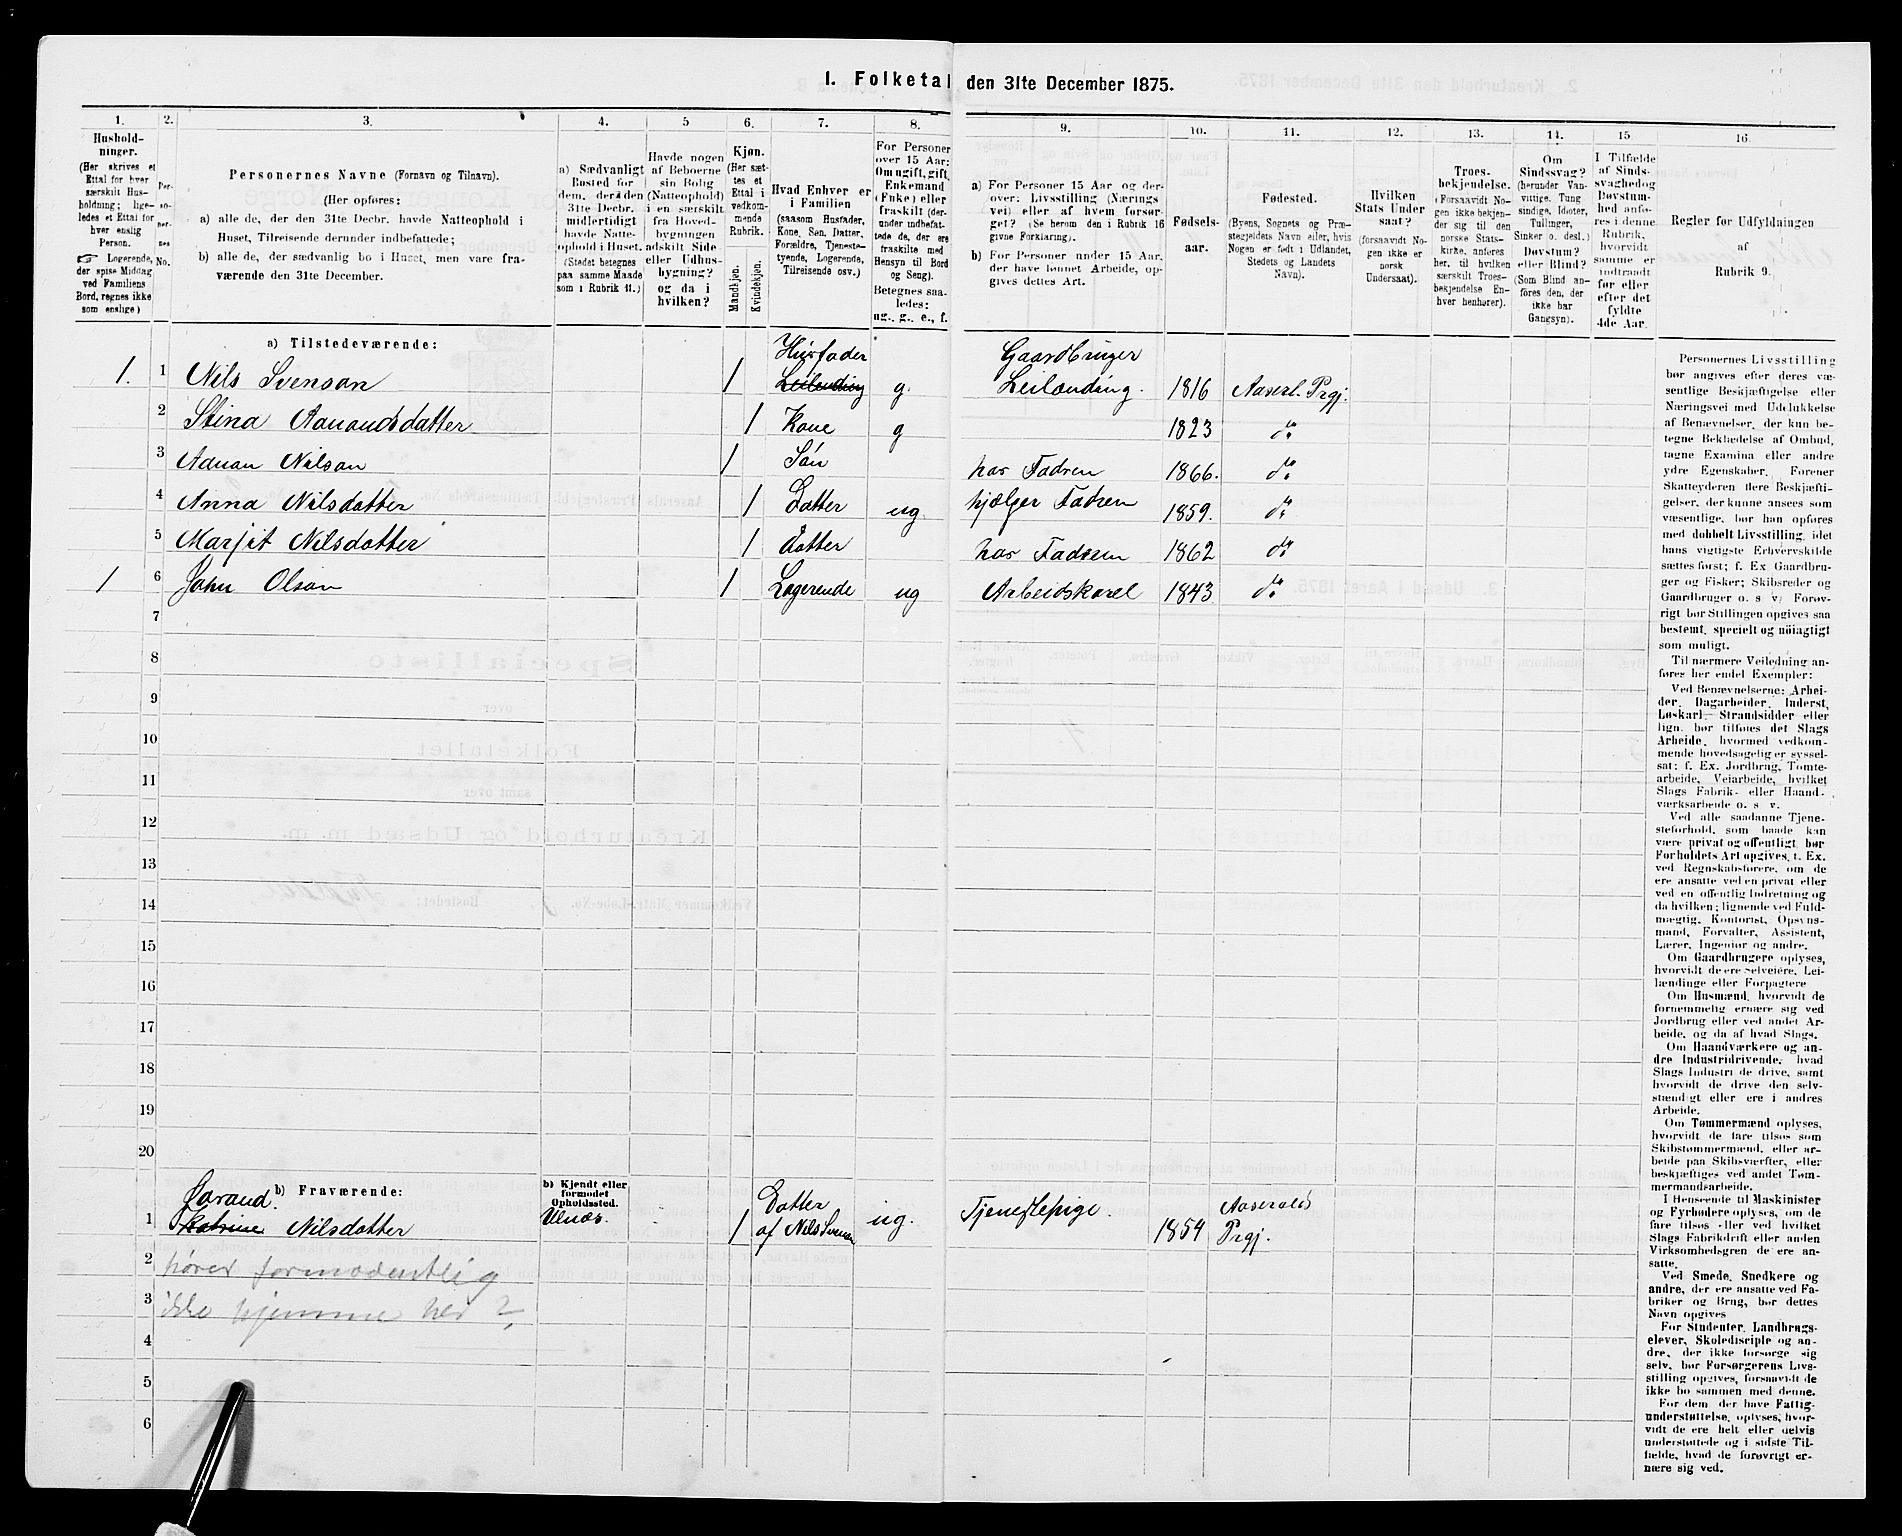 1. Folketal den 31te December 1875.
1.
2.
3.
4.
5
6.
7.
8.
9.
10.
11.
12.
13.
14.
15
16
Hushold-
ninger.
(Her skrives et
Ettal for hver
særskilt Hus-
holdning; lige-
ledes et Ettal for
hver enslig
Person.
☞ Logerende,
der spise Middag
ved Familiens
Bord, regnes ikke
som enslige)
Per-
so-
ner-
nes
No.
Personernes Navne (Fornavn og Tilnavn).
(Her opføres:
a) alle de, der den 31te Decbr. havde Natteophold i
Huset, Tilreisende derunder indbefattede;
b) alle de, der sædvanlig bo i Huset, men vare fra-
værende den 31te December.
a) Sædvanligt
Bosted for
dem, der den
31te Decbr.
midlertidigt
havde Natte-
ophold i Huset.
(Stedet betegnes
paa samme Maade
som i Rubrik 11.)
Havde nogen
af Beboerne
sin Bolig
(Natteophold)
i en særskilt
fra Hoved-
bygningen
adskilt Side-
eller Udhus-
bygning?
og da i
hvilken?
Kjøn.
(Her sæt-
tes et
Ettal i
vedkom-
mende
Rubrik.
Mandkjøn.
Kvindekjøn.
Hvad Enhver er
i Familien
(saasom Husfader,
Kone, Søn, Datter,
Forældre, Tjeneste-
tyende, Logerende,
Tilreisende osv.)
For Personer
over 15 Aar:
Om ugift, gift,
Enkemand
(Enke) eller
fraskilt (der-
under indbefat-
tede de, der ere
fraskilte med
Hensyn til Bord
og Seng).
Betegnes saa-
ledes:
ug., g., e., f.
a) For Personer 15 Aar og der-
over: Livsstilling (Nærings
vei) eller af hvem forsør-
get? (Se herom den i Rubrik 16
givne Forklaring).
b) For Personer under 15 Aar,
der have lønnet Arbeide, op-
gives dettes Art.
Fødsels-
aar.
Fødested.
(Byens, Sognets og Præ-
stegjeldets Navn eller, hvis
Nogen er født i Udlandet,
Stedets og Landets
Navn).
Hvilken
Stats Under
saat?
(forsaavidt No-
gen ikke er
norsk
Undersaat).
Troes-
bekjendelse.
(Forsaavidt No-
gen ikke bekjen-
der sig til den
norske Stats-
kirke, anføres
her, til hvilken
særskilt Troes-
bekjendelse En-
hver henhører).
Om
Sindssvag?
(herunder Van-
vittige, Tung
sindige, Idioter,
Tullinger,
Sinker o. desl.)
Døvstum?
eller Blind?
(Som Blind an-
føres den, der
ikke har
Gangsyn).
I Tilfælde
af Sinds-
svaghed og
Døvstum-
hed anfø-
res i denne
Rubrik,
hvorvidt
samme er
indtraadt
før eller
efter det
fyldte
4de Aar.
Regler før Udfyldningen
af
Rubrik 9.
a) Tilstedeværende:
1. 1 Nils Svenson 1 Husfader Leilending g. Gaardbruger Leilænding. 1816 Aaserl. Prgj.
2 Stina Aanandsdatter 1 Kone g 1823 do
3 Adnan Nilson 1 Søn hos Fadren 1866. do
4 Anna Nilsdatter 1 Datter ug. hjælper Fadren 1859. do
5 Marjit Nilsdatter 1 datter hos Fadren 1862 do
1 6 John Olson 1 Logerende ug Arbeidskarel 1843 do
7
8
9
10
11
12
13
14
15
16
17
18
19
20
b) Fraværende:
b) Kjendt eller
formodet
Opholdssted.
1 Gorand. Katrine Nilsdatter 1 Datter af Nils Svenson ug. Tjenestepige. 1854 Aaserals Prgj.
2 hører formodentlig
3 ikke hjemme her?
4
5
6
Personernes Livsstilling
bør angives efter deres væ-
sentlige Beskjæftigelse eller
Næringsvei med Udelukkelse
af Benævnelser, der kun be-
tegne Beklædelse af Ombud,
tagne Examina eller andre
ydre Egenskaber. Forener
Skatteyderen flere Beskjæfti-
gelser, der kunne ansees som
væsentlige, bør han opføres
med dobbelt Livsstilling, idet
hans vigtigste Erhvervskilde
sættes først; f. Ex Gaardbru-
ger og Fisker; Skibsreder og
Gaardbruger o. s v. Forøv-
rigt bør Stillingen opgives saa
bestemt, specielt og nöiagtigt
som muligt.
Til nærmere Veiledning an-
føres her endel Exempler:
Ved Benævnelserne: Arbei-
der, Dagarbeider, Inderst,
Løskarl, Strandsidder eller
lign. bør tilføres det Slags
Arbeide, hvormed vedkom-
mende hovedsagelig er syssel-
sat; f. Ex. Jordbrug, Tomte-
arbeide, Veiarbeide, hvilket
Slags Fabrik- eller Haand-
værksarbeide o. s v.
Ved alle saadanne Tjene-
steforhold, som baade kan
være privat og offentligt, bør
Forholdets Art opgives, t. Ex.
ved Regnskabsførere, om de
ere ansatte ved en privat eller
ved en offentlig Indretning og
da hvilken; lignende ved Fuld-
mægtig, Kontorist, Opsyns-
mand, Forvalter, Assistent,
Lærer, Ingeniør og andre.
Om Gaardbrugere oplyses,
hvorvidt de ere Selveiere, Lei-
lændinge eller Forpagtere
Om Husmænd, hvorvidt de
fornemmelig ernære sig ved
Jordbrug eller ved andet Ar-
beide, og da af hvad Slags.
Om Haandværkere og an-
dre Industridrivende, hvad
Slags Industri de drive, samt
hvorvidt de drive den selv-
stændigt eller ere i andres
Arbeide.
Om Tømmermænd oplyses,
hvorvidt de fare tilsøs som
Skibstømmermænd, eller ar-
beide paa Skibsværfter, eller
beskjæftiges ved andet Tøm-
mermandsarbeide.
I Henseende til Maskinister
og Fyrbødere oplyses, om de
fare tilsøs eller ved hvilket
Slags Fabrikdrift eller anden
Virksomhedsgren de ere an-
satte.
Ved Smede, Snedkere og
andre, der ere ansatte ved Fa-
briker og Brug, bør dettes
Navn opgives
For Studenter, Landbrugs-
elever, Skoledisciple og an-
dre, der ikke forsørge sig
selv, bør Forsørgerens Livs-
stilling opgives, forsaavidt de
ikke bo sammen med denne.
For dem, der have Fattig-
understøttelse, oplyses, hvor-
vidt de ere helt eller delvis
understøttede og i sidste Til-
fælde, hvad de forøvrigt er-
nære sig ved.